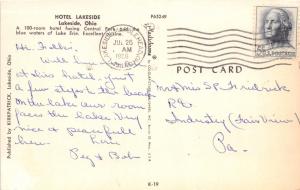 HOTEL LAKESIDE
Lakeside, Ohio
A 100-room hotel facing Central Park and the
blue waters of Lake Erie. Excellent cuisine.
PA5249
Hi Folks:
Will be
at this hotel. Just
a few steps the beach
On the lake our room
faces the lake. Very
nice & peaceful
here. Love
Peg & Bob
Published by KIRKPATRICK, Lakeside, Ohio
JUL 26
AM
POST CARD
Mr & Mrs S. P. Fredrick
R.D.
Industry (Fairview)
Pa.
K-19